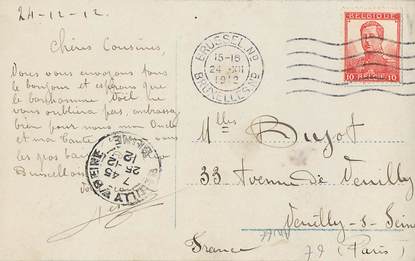 24-12-12.
Chères Cousines,
Vous vous envoyons tous
le bonjour et espérons que
le bonhomme Noël ne
vous oubliera pas, embrassez
bien pour nous mon Oncle
et ma Tante
les pas
Bruxellois
BRUSSEL Nd
15-16
24 XII
1912
BRUXELLES Nd
BELGIQUE
10 BELGIË 10
SEINE
7 45
25
Mlles Dujot
33 Avenue de Neuilly
Neuilly-s-Seine
France
(Paris)